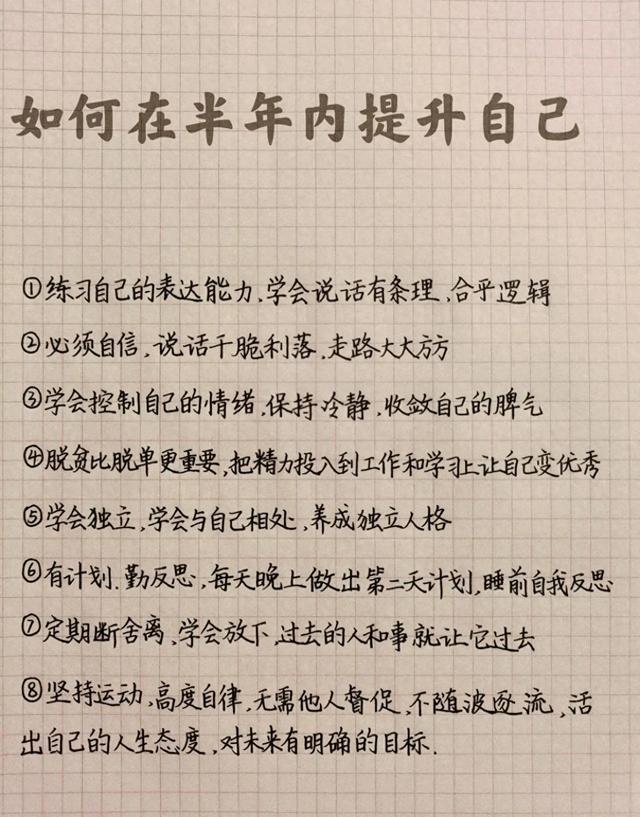 如何在半年内提升自己
①练习自己的表达能力,学会说话有条理,合乎逻辑
②必须自信,说话干脆利落,走路大大方方
③学会控制自己的情绪,保持冷静,收敛自己的脾气
④脱贫比脱单更重要,把精力投入到工作和学习上让自己变优秀
⑤学会独立,学会与自己相处,养成独立人格
⑥有计划.勤反思,每天晚上做出第二天计划,睡前自我反思
⑦定期断舍离,学会放下,过去的人和事就让它过去
⑧坚持运动,高度自律,无需他人督促,不随波逐流,活
出自己的人生态度,对未来有明确的目标.